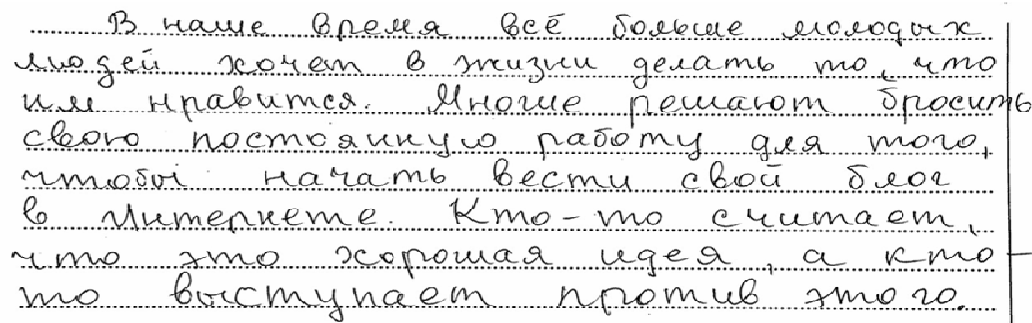 В наше время всё больше молодых
людей хочет в жизни делать то, что
им нравится. Многие решают бросить
свою постоянную работу для того,
чтобы начать вести свой блог
в Интернете. Кто-то считает,
что это хорошая идея, а кто-
то выступает против этого.